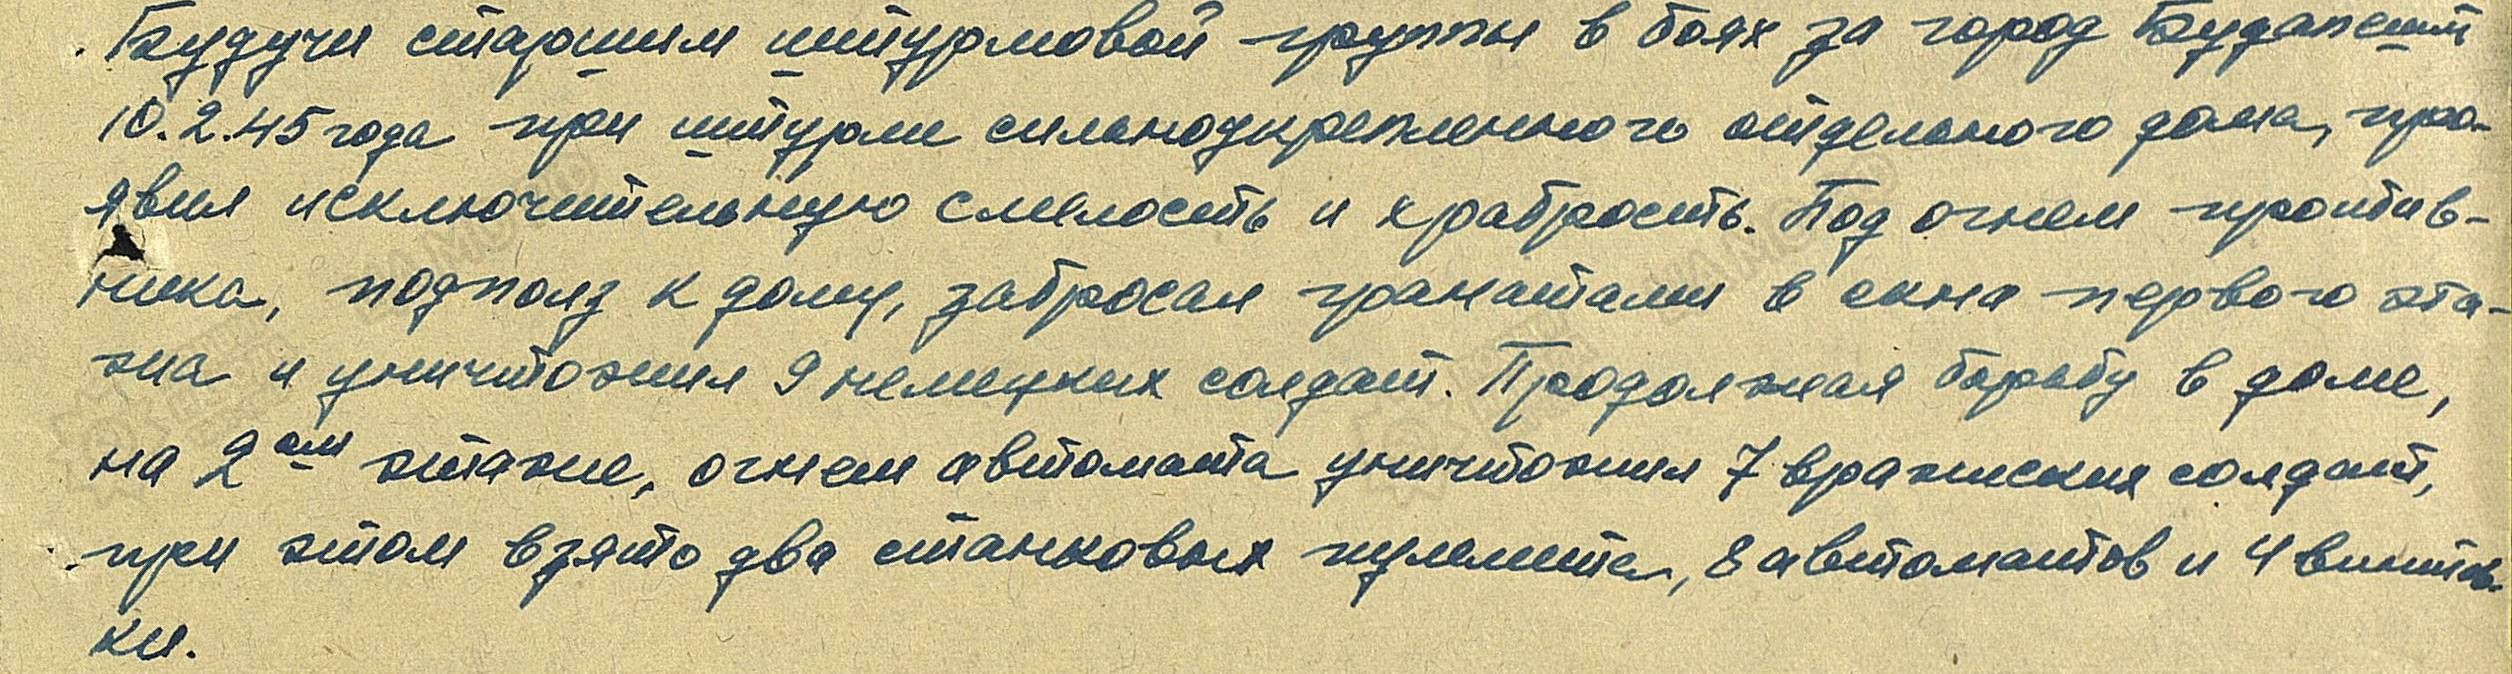 Будучи старшим штурмовой группы в боях за город Будапешт
10.2.45 года при штурме сильноукрепленного отдельного дома, про-
явил исключительную смелость и храбрость. Под огнем против-
ника, подполз к дому, забросал гранатами в окна первого эта-
жа и уничтожил 9 немецких солдат. Продолжая борьбу в доме,
на 2ом этаже, огнем автомата уничтожил 7 вражеских солдат,
при этом взято два станковых пулемета, 8 автоматов и 4 винтов-
ки.